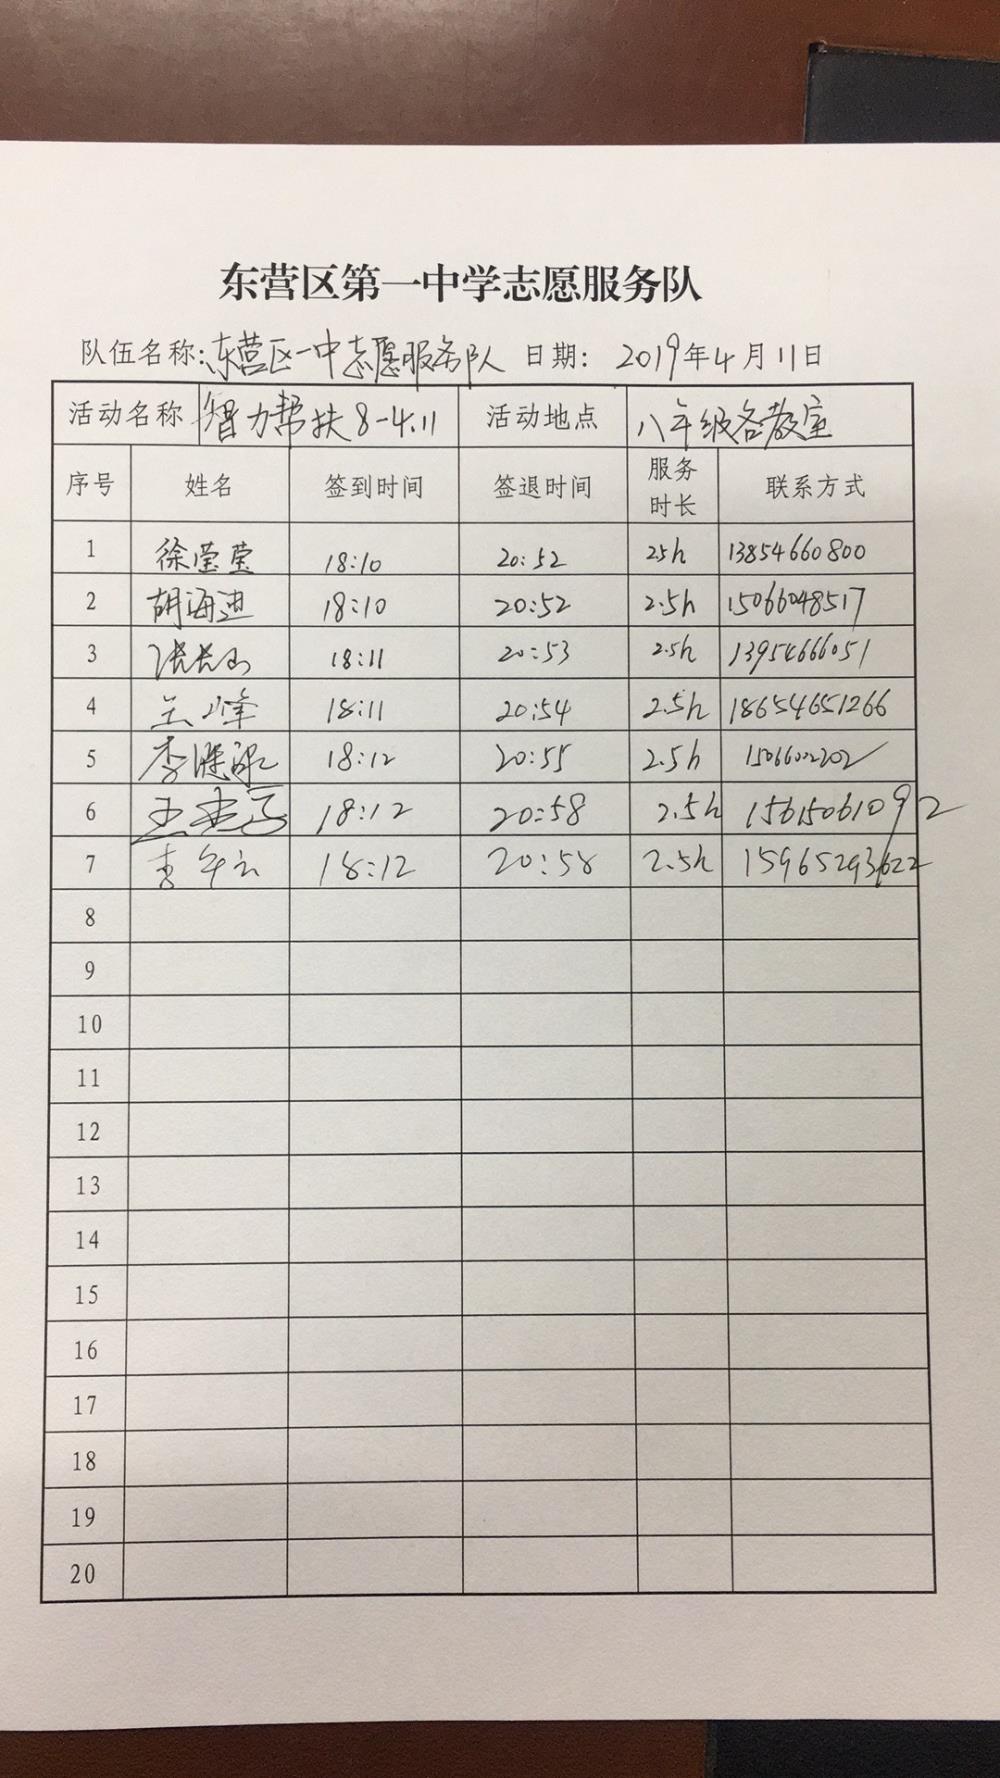 东营区第一中学志愿服务队
队伍名称:东营区一中志愿服务队 日期: 2019年4月11日
活动名称 智力帮扶8-4.11 活动地点 八年级各教室
序号 姓名 签到时间 签退时间 服务时长 联系方式
1 徐莹莹 18:10 20:52 2.5h 13854660800
2 胡海迪 18:10 20:52 2.5h 15066048517
3 18:11 20:53 2.5h 13954666051
4 王峰 18:11 20:54 2.5h 18654651266
5 李 18:12 20:55 2.5h 15066002202
6 王 18:12 20:58 2.5h 15615061092
7 李 18:12 20:58 2.5h 15965293622
8
9
10
11
12
13
14
15
16
17
18
19
20